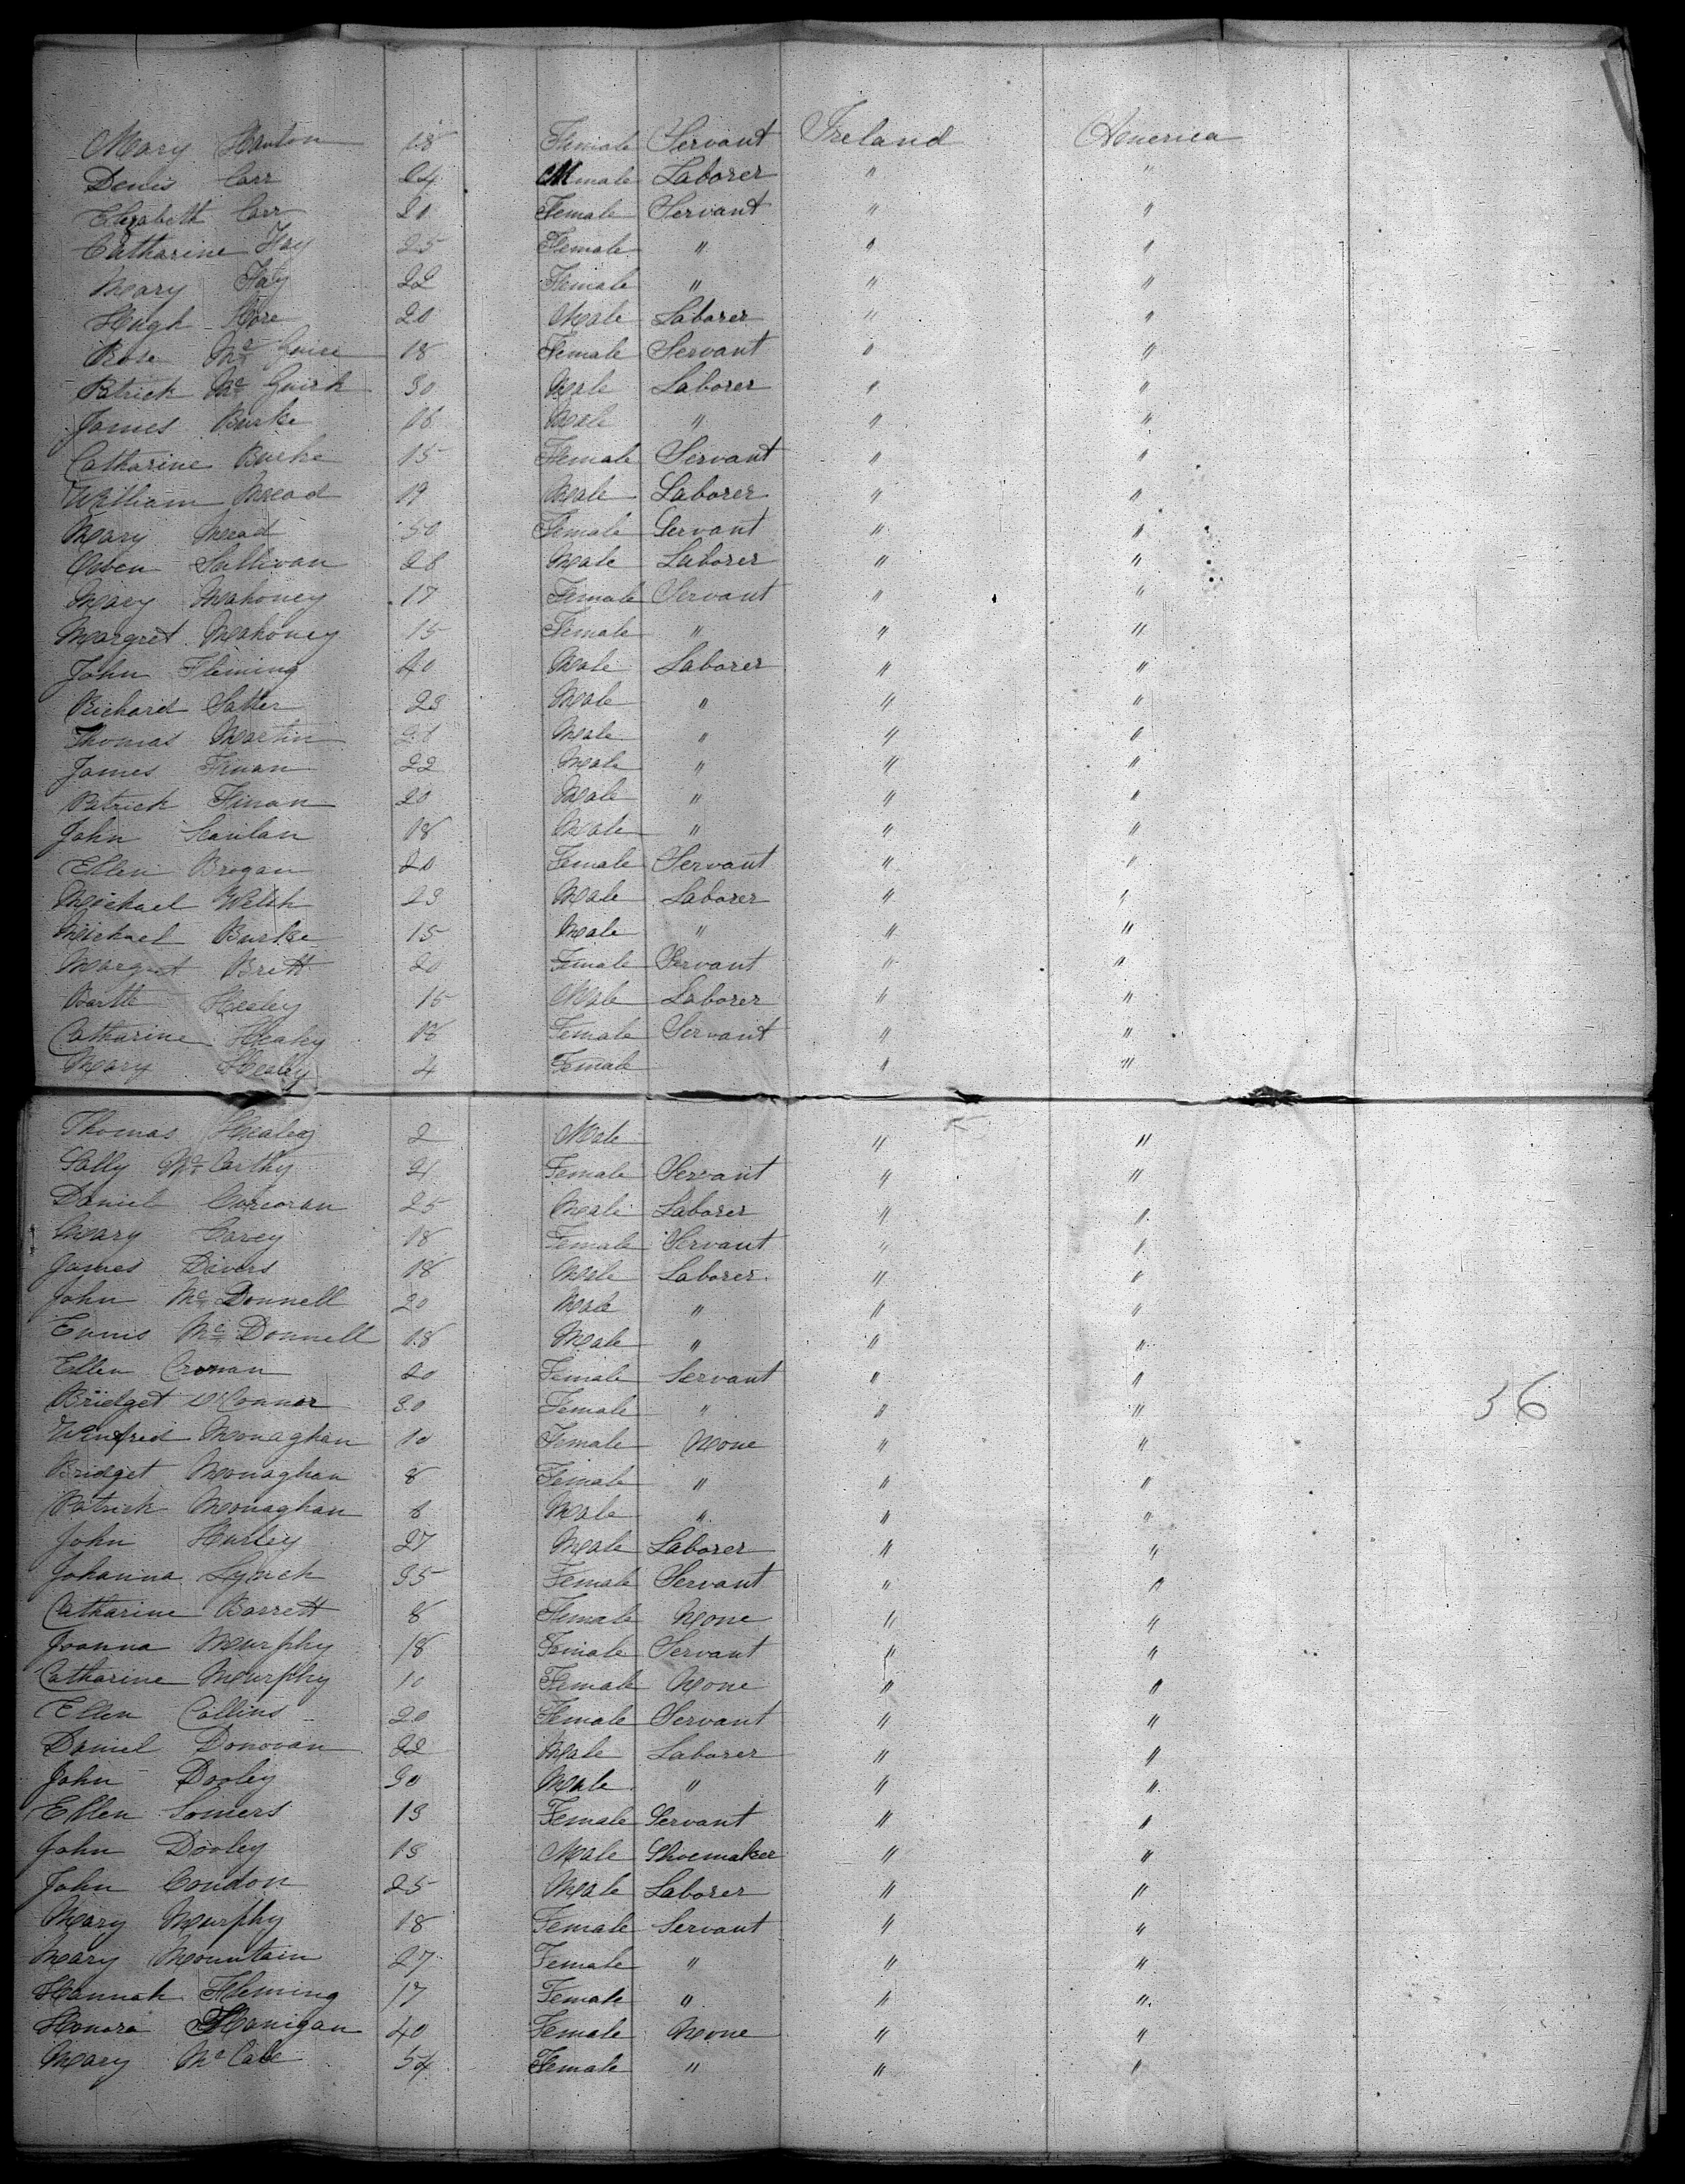 Mary Hanlon 18 Female Servant Ireland America
Denis Carr 24 Male Laborer " "
Elizabeth Carr 20 Female Servant " "
Catharine Hay 25 Female " " "
Mary Hay 22 Female " " "
Hugh Hore 20 Male Laborer " "
Rose Mc Guire 18 Female Servant " "
Patrick Mc Guirk 30 Male Laborer " "
James Burke 16 Male " " "
Catharine Burke 15 Female Servant " "
William Mead 19 Male Laborer " "
Mary Mead 50 Female Servant " "
Owen Sullivan 28 Male Laborer " "
Mary Mahoney 17 Female Servant " "
Margret Mahoney 15 Female " " "
John Fleming 40 Male Laborer " "
Richard Salter 23 Male " " "
Thomas Martin Male " " "
James Finan 22 Male " " "
Patrick Finan 20 Male " " "
John Scanlan 18 Male " " "
Ellen Brogan 20 Female Servant " "
Michael Welsh 23 Male Laborer " "
Michael Burke 15 Male " " "
Margret Brett 20 Female Servant " "
Bartle Healey 15 Male Laborer " "
Catharine Healey 18 Female Servant " "
Mary Healey 4 Female " "
Thomas Healey 2 Male " "
Sally Mc Carthy 21 Female Servant " "
Daniel Corcoran 25 Male Laborer " "
Mary Carey 18 Female Servant " "
James Divers 18 Male Laborer " "
John Mc Donnell 20 Male " " "
Ennis Mc Donnell 18 Male " " "
Ellen Cronan 20 Female Servant " "
Bridget O'Connor 30 Female " " " 36
Winfred Monaghan 10 Female None " "
Bridget Monaghan 8 Female " " "
Patrick Monaghan 6 Male " " "
John Hurley 27 Male Laborer " "
Johanna Lynch 35 Female Servant " "
Catharine Barrett 8 Female None " "
Joanna Murphy 18 Female Servant " "
Catharine Murphy 10 Female None " "
Ellen Collins 20 Female Servant " "
Daniel Donovan 22 Male Laborer " "
John Dooley 30 Male " " "
Ellen Somers 13 Female Servant " "
John Dooley 13 Male Shoemaker " "
John Condon 25 Male Laborer " "
Mary Murphy 18 Female Servant " "
Mary Mountain 27 Female " " "
Hannah Fleming 17 Female " " "
Honora Hanigan 40 Female None " "
Mary Mc Cabe 54 Female " " "